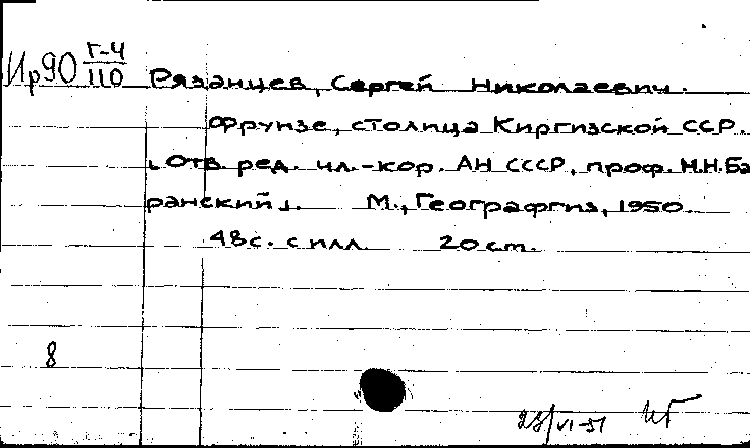 Ир90 Г-4/110
Рязанцев, Сергей Николаевич.
Фрунзе, столица Киргизской ССР.
[Отв. ред. чл.-кор. АН СССР, проф. Н.Н.Ба
ранский].  М., Географгиз, 1950.
48с. с илл.  20 ст.
8
23/VI-51 ИГ